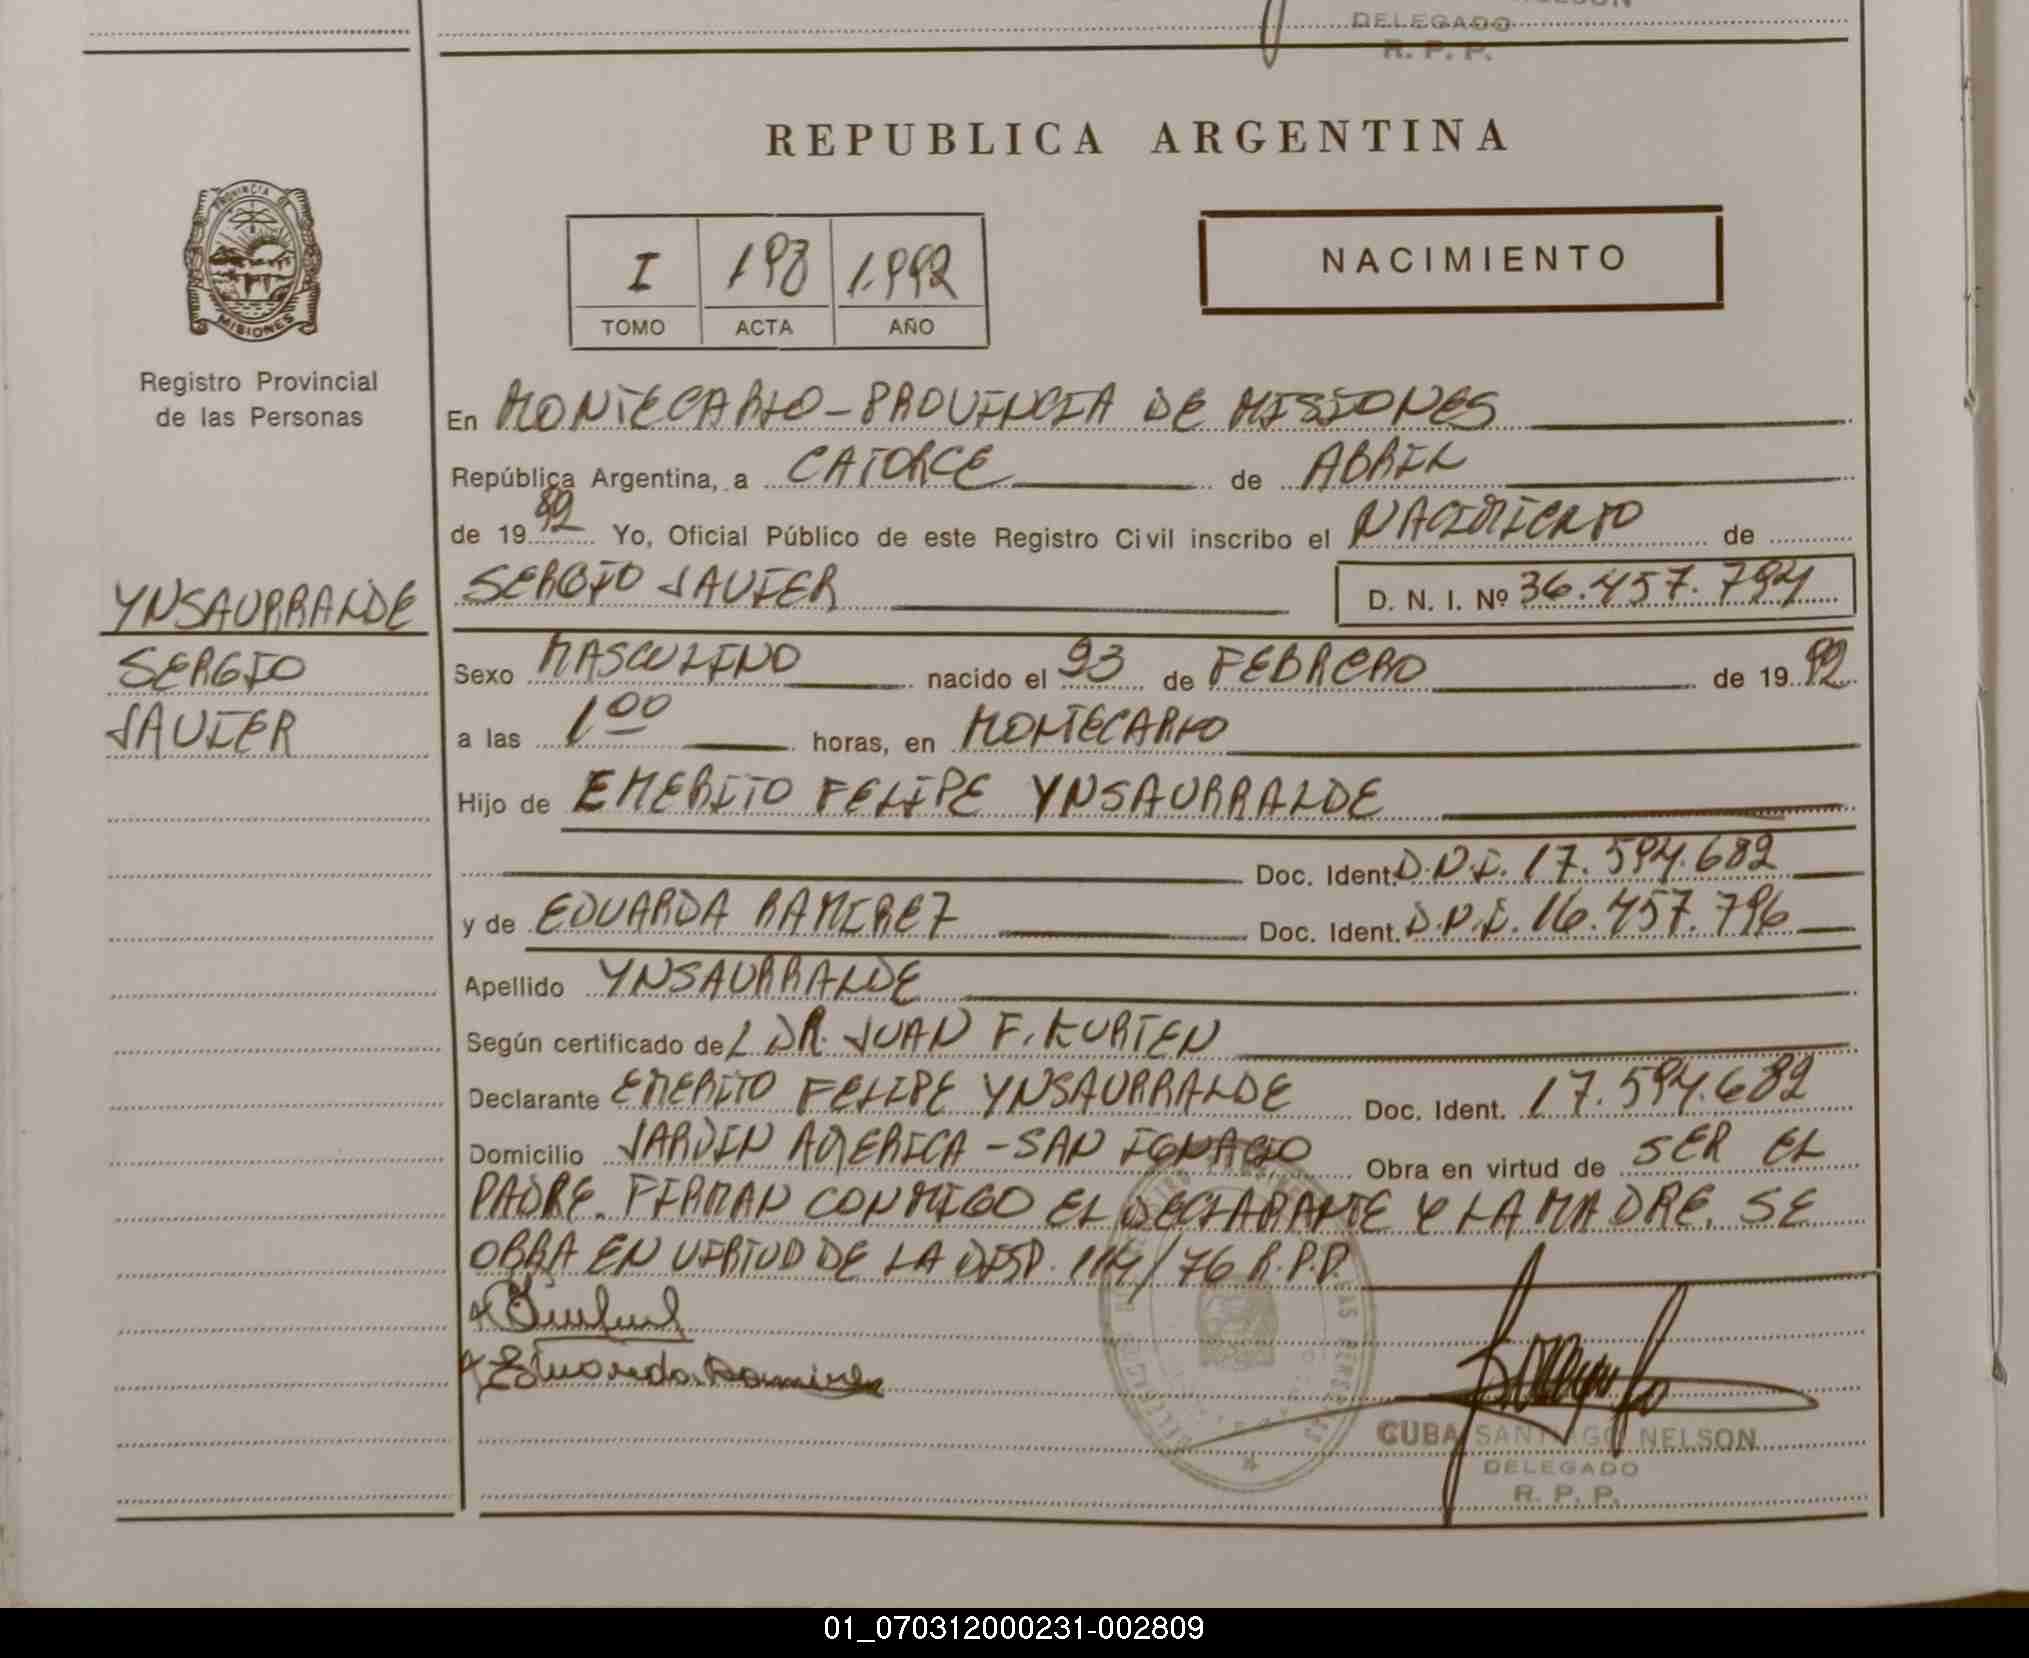 DELEGADO
R. P. P.
REPUBLICA ARGENTINA
PROVINCIA DE
MISIONES
I 198 1.992
TOMO ACTA AÑO
NACIMIENTO
Registro Provincial
de las Personas
En MONTECARLO - PROVINCIA DE MISIONES
República Argentina, a CATORCE de ABRIL
de 1992 Yo, Oficial Público de este Registro Civil inscribo el NACIMIENTO de
SERGIO JAVIER D. N. I. Nº 36.457.794
YNSAURRALDE
SERGIO
JAVIER
Sexo MASCULINO nacido el 23 de FEBRERO de 1992
a las 1 00 horas, en MONTECARLO
Hijo de EMERITO FELIPE YNSAURRALDE
Doc. Ident. D.N.I. 17.594.682
y de EDUARDA RAMIREZ Doc. Ident. D.N.I. 16.457.796
Apellido YNSAURRALDE
Según certificado del DR. JUAN F. KURTEN
Declarante EMERITO FELIPE YNSAURRALDE Doc. Ident. 17.594.682
Domicilio JARDIN AMERICA - SAN IGNACIO Obra en virtud de SER EL
PADRE. FIRMAN CONMIGO EL DECLARANTE Y LA MADRE. SE
OBRA EN VIRTUD DE LA DISP. 114/76 R.P.P.
Eduarda Ramirez
CUBA SANTIAGO NELSON
DELEGADO
R. P. P.
01_070312000231-002809